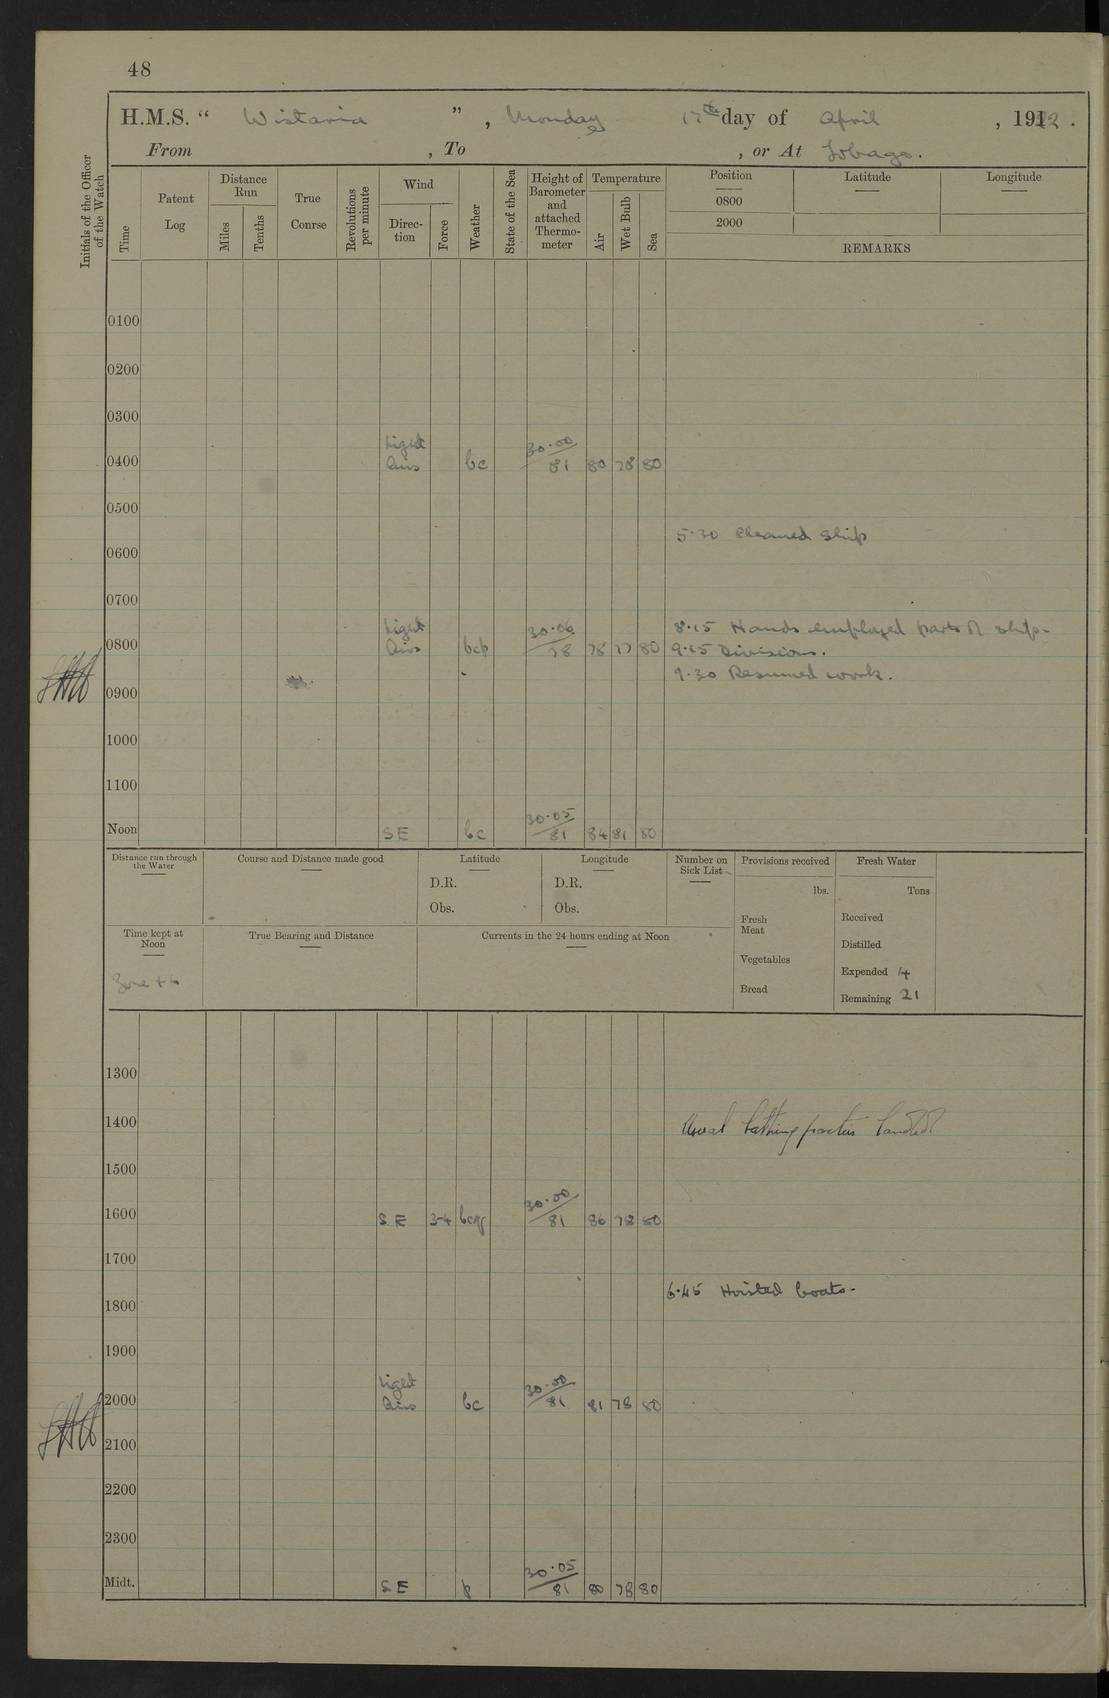 48
H.M.S. “ Wistaria ” , Monday 17th day of April , 1922 .
From , To , or At Tobago.
Initials of the Officer of the Watch
Time
Patent Log
Distance Run
Miles
Tenths
True Course
Revolutions per minute
Wind
Direc-tion
Force
Weather
State of the Sea
Height of Barometer and attached Thermo-meter
Temperature
Air
Wet Bulb
Sea
Position
0800
2000
Latitude
Longitude
REMARKS
0100
0200
0300
0400 Light Airs bc 30.00/81 80 78 80
0500
5.30 Cleaned ship
0600
0700
8.15 Hands employed parts of ship.
0800 Light Airs bcp 30.06/78 78 77 80 9.15 Divisions.
9.30 Resumed work.
0900
1000
1100
Noon SE bc 30.05/81 84 81 80
Distance run through the Water
Course and Distance made good
Latitude
D.R.
Obs.
Longitude
D.R.
Obs.
Number on Sick List
Provisions received
lbs.
Fresh Meat
Vegetables
Bread
Fresh Water
Tons
Received
Distilled
Expended 4
Remaining 21
Time kept at Noon
Zone +4
True Bearing and Distance
Currents in the 24 hours ending at Noon
1300
1400 Usual bathing parties landed
1500
1600 SE 3-4 30.00/81 86 78 80
1700
6.45 Hoisted boats.
1800
1900
2000 Light Airs bc 30.00/81 81 78 80
2100
2200
2300
Midt. SE p 30.05/81 80 78 80